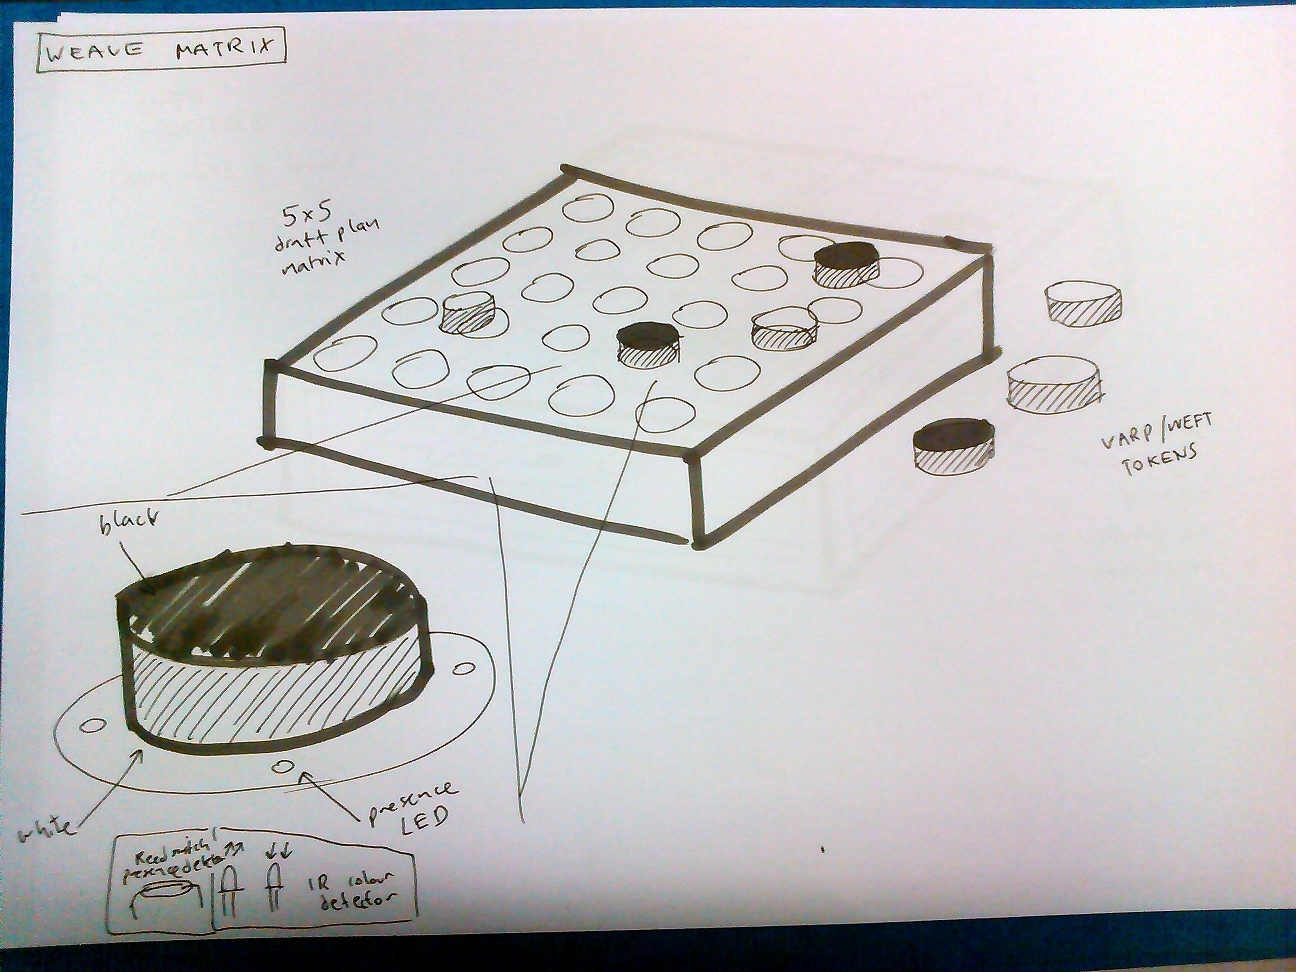 WEAVE MATRIX
5x5
draft plan
matrix
WARP/WEFT
TOKENS
black
white
presence
LED
Reed switch/
presence detector
IR colour
detector